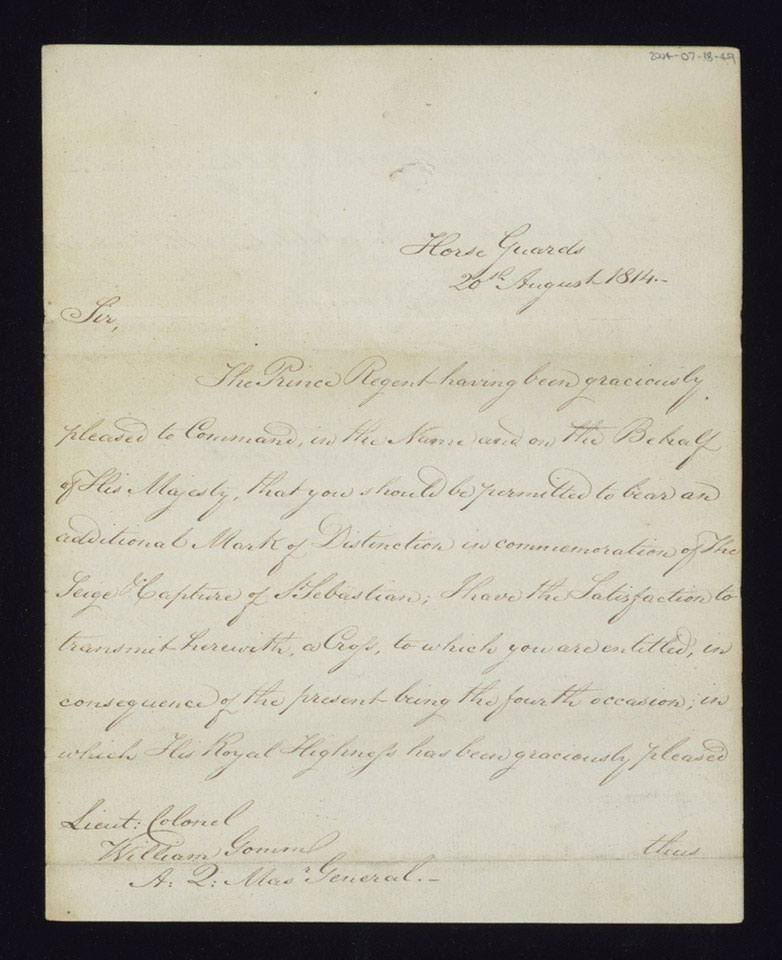 2004-07-18-49
Horse Guards
20th August 1814.-
Sir,
The Prince Regent having been graciously
pleased to Command, in the Name and on the Behalf
of His Majesty, that you should be permitted to bear an
additional Mark of Distinction in commemoration of The
Seige & Capture of St Sebastian; I have the Satisfaction to
transmit herewith, a Cross, to which you are entitled, in
consequence of the present being the fourth occasion; in
which His Royal Highness has been graciously pleased
Lieut: Colonel
William Gomm
A: Q: Masr General.-
thus